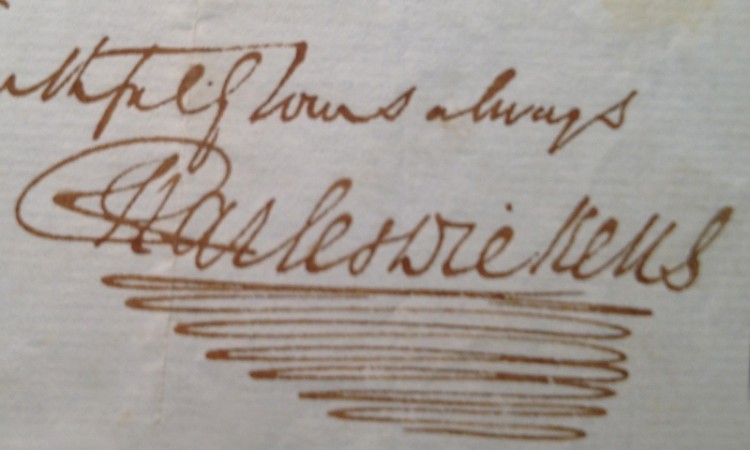 aithfully Yours always
Charles Dickens